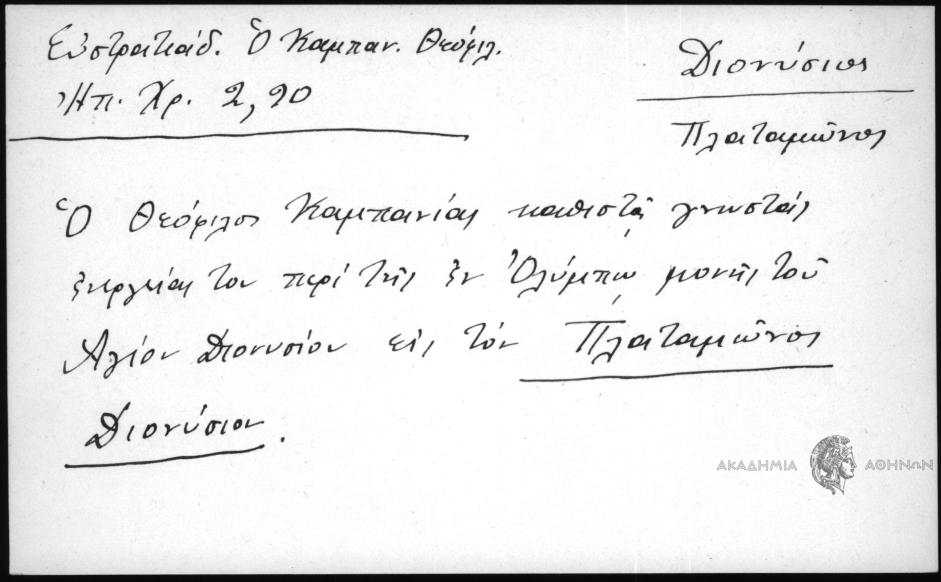 Εὐστρατιάδ. Ὁ Καμπαν. Θεόφιλ.
Ἠπ. Χρ. 2, 90
Διονύσιος
Πλαταμῶνος
Ὁ Θεόφιλος Καμπανίας καθιστᾷ γνωστάς
ἐνεργείας του περί τῆς ἐν Ὀλύμπῳ μονῆς τοῦ
Ἁγίου Διονυσίου εἰς τόν Πλαταμῶνος
Διονύσιον.
ΑΚΑΔΗΜΙΑ ΑΘΗΝΩΝ